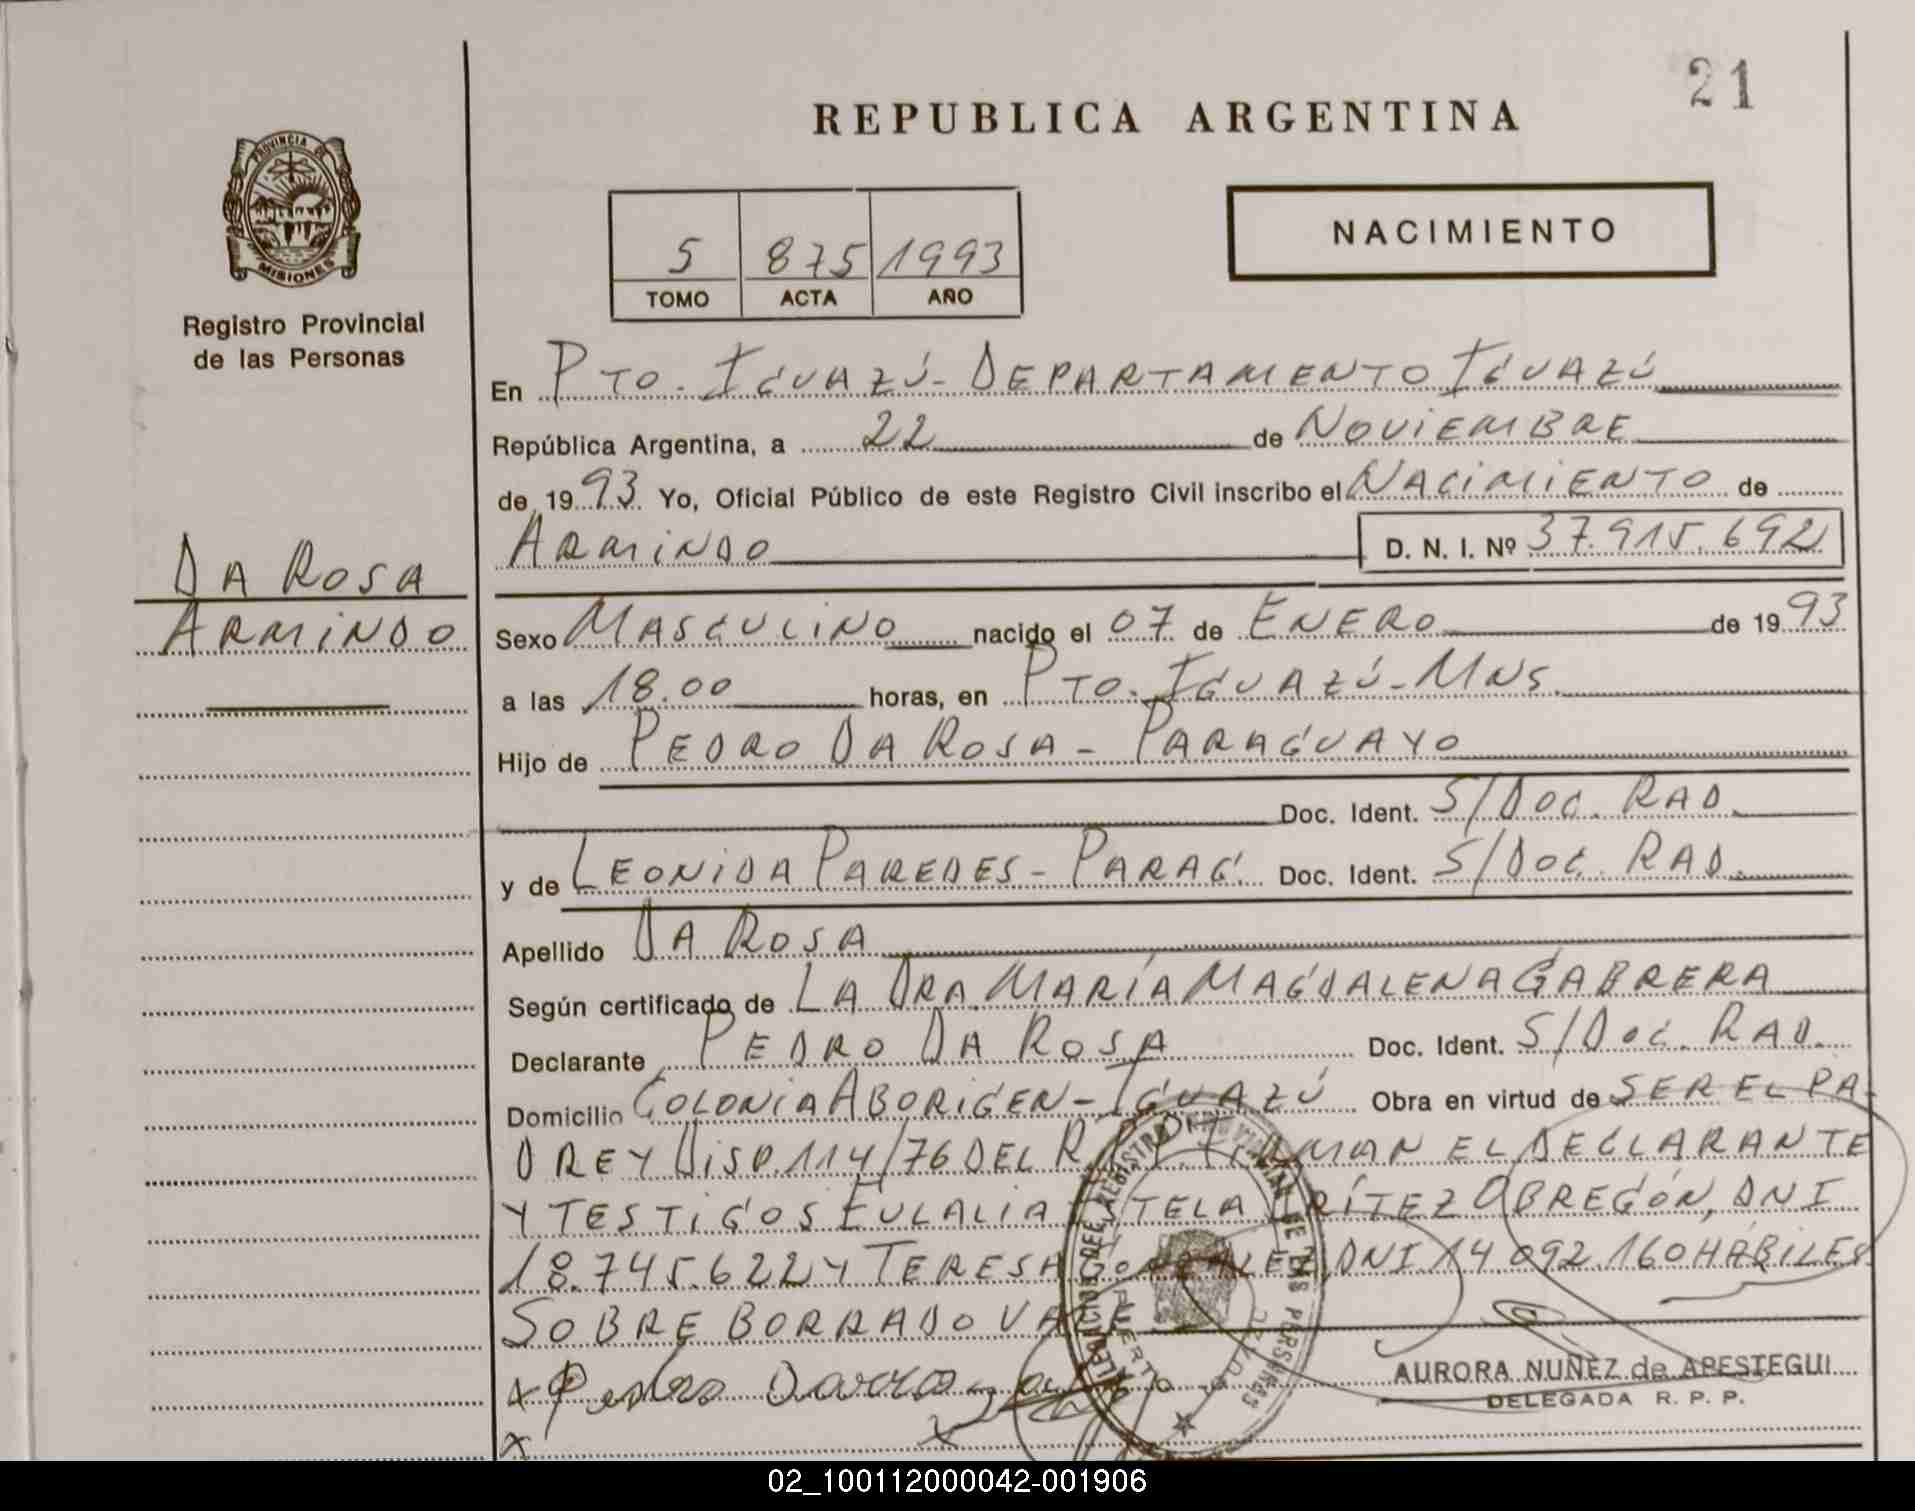 21
REPUBLICA ARGENTINA
PROVINCIA DE
MISIONES
Registro Provincial
de las Personas
5 875 1993
TOMO ACTA AÑO
NACIMIENTO
En PTO. IGUAZÚ - DEPARTAMENTO IGUAZÚ
República Argentina, a 22 de NOVIEMBRE
de 1993 Yo, Oficial Público de este Registro Civil inscribo el NACIMIENTO de
ARMINDO D. N. I. Nº 37.915.692
DA ROSA
ARMINDO
Sexo MASCULINO nacido el 07 de ENERO de 1993
a las 18.00 horas, en PTO. IGUAZÚ - MNS.
Hijo de PEDRO DA ROSA - PARAGUAYO
Doc. Ident. S/DOC. RAD.
y de LEONIDA PAREDES - PARAG. Doc. Ident. S/DOC. RAD.
Apellido DA ROSA
Según certificado de LA DRA. MARÍA MAGDALENA CABRERA
Declarante PEDRO DA ROSA Doc. Ident. S/DOC. RAD.
Domicilio COLONIA ABORIGEN - IGUAZÚ Obra en virtud de SER EL PA-
DRE Y DISP. 114/76 DEL R.P.P. FIRMAN EL DECLARANTE
Y TESTIGOS EULALIA ESTELA BRÍTEZ OBREGÓN, DNI
18.745.622 Y TERESA GONZALEZ, DNI 14.092.160 HÁBILES
SOBRE BORRADO VALE
x Pedro
AURORA NUÑEZ de APESTEGUI
DELEGADA R. P. P.
x x
02_100112000042-001906